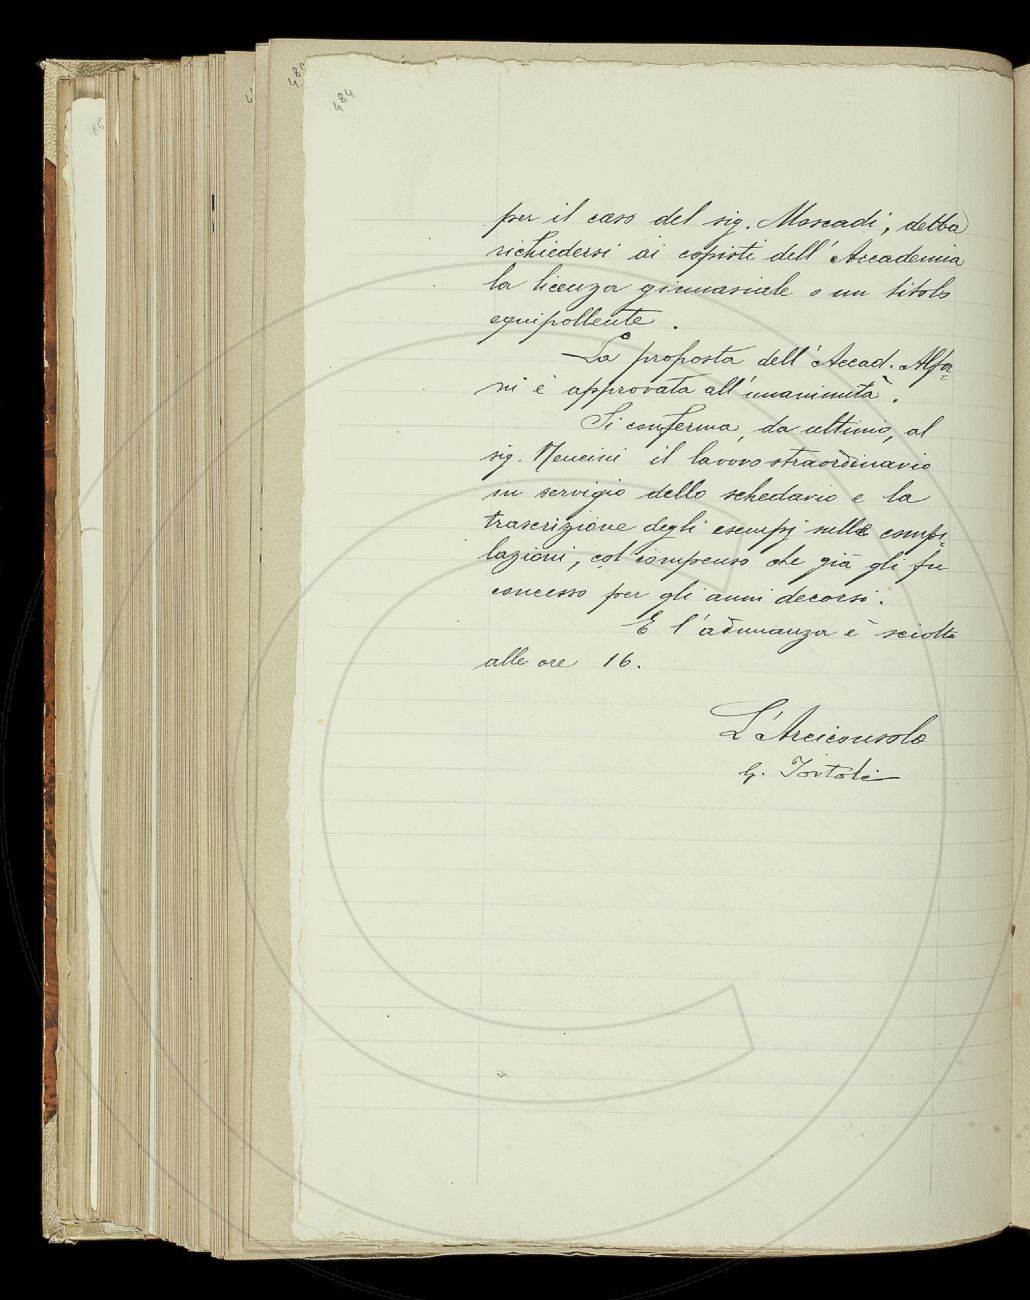 484
per il caso del sig. Moscadi, debba
richiedersi ai copisti dell'Accademia
la licenza ginnasiale o un titolo
equipollente.
La proposta dell'Accad. Alfa=
ni è approvata all'unanimità.
Si conferma, da ultimo, al
sig. Mencini il lavoro straordinario
in servigio dello schedario e la
trascrizione degli esempj sulle compi=
lazioni, col compenso che già gli fu
concesso per gli anni decorsi.
E l'adunanza è sciolta
alle ore 16.
L'Arciconsolo
G. Tortoli